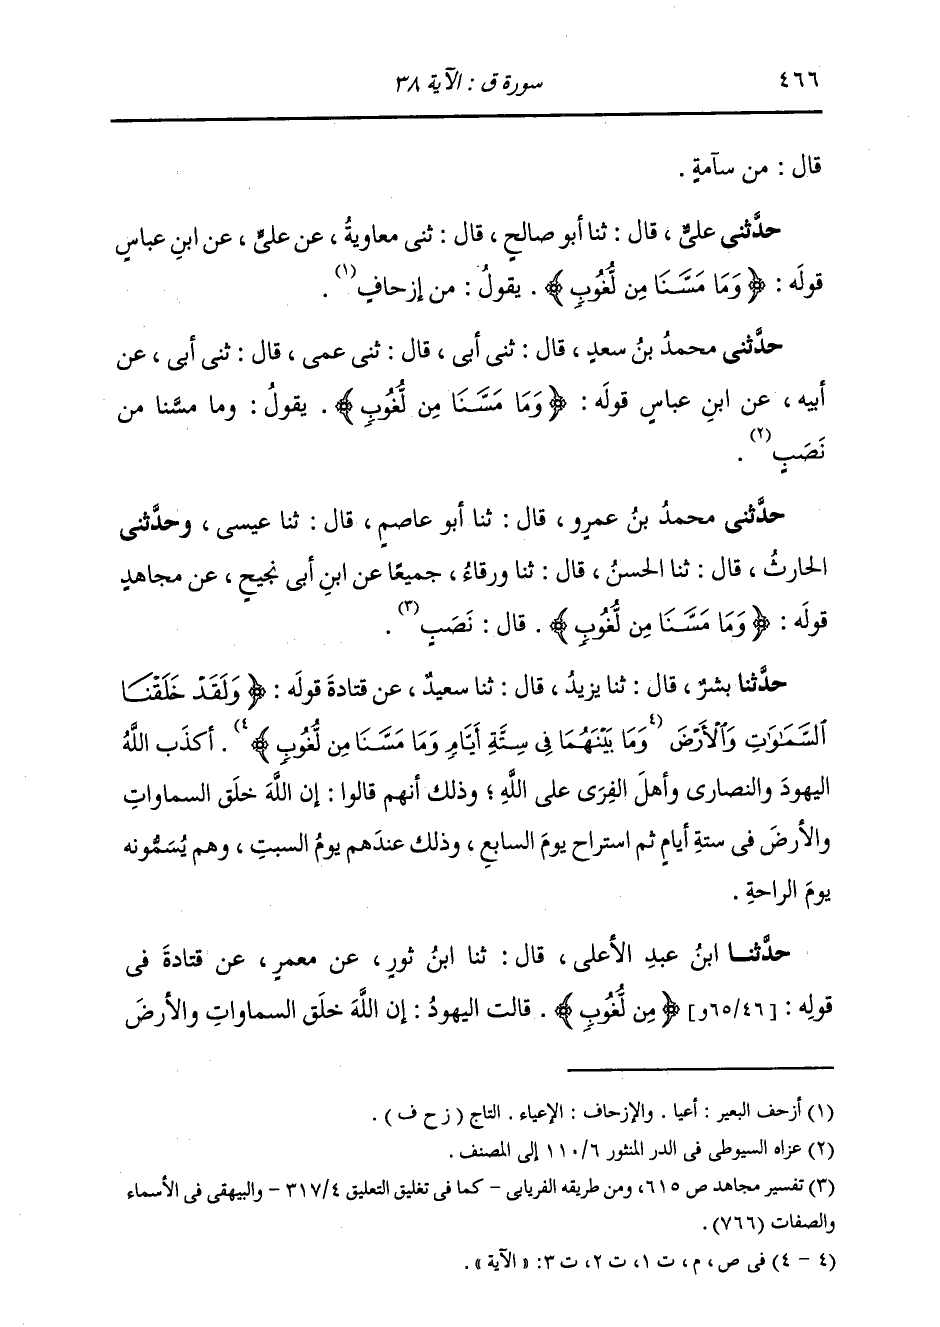 ٤٦٦ سورة ق : الآية ٣٨
قال : من سآمةٍ .
حدَّثنى علىٌّ ، قال : ثنا أبو صالحٍ ، قال : ثنى معاويةُ ، عن علىٍّ ، عن ابنِ عباسٍ
قولَه : ﴿ وَمَا مَسَّنَا مِن لُّغُوبٍ ﴾ . يقولُ : من إزحافٍ(١) .
حدَّثنى محمدُ بنُ سعدٍ ، قال : ثنى أبى ، قال : ثنى عمى ، قال : ثنى أبى ، عن
أبيه ، عن ابنِ عباسٍ قولَه : ﴿ وَمَا مَسَّنَا مِن لُّغُوبٍ ﴾ . يقولُ : وما مسَّنا من
نَصَبٍ(٢) .
حدَّثنى محمدُ بنُ عمرٍو ، قال : ثنا أبو عاصمٍ ، قال : ثنا عيسى ، وحدَّثنى
الحارثُ ، قال : ثنا الحسنُ ، قال : ثنا ورقاءُ ، جميعًا عن ابنِ أبى نجيحٍ ، عن مجاهدٍ
قولَه : ﴿ وَمَا مَسَّنَا مِن لُّغُوبٍ ﴾ . قال : نَصَبٍ(٣) .
حدَّثنا بشرٌ ، قال : ثنا يزيدُ ، قال : ثنا سعيدٌ ، عن قتادةَ قولَه : ﴿ وَلَقَدْ خَلَقْنَا
ٱلسَّمَٰوَٰتِ وَٱلْأَرْضَ (٤وَمَا بَيْنَهُمَا فِى سِتَّةِ أَيَّامٍ وَمَا مَسَّنَا مِن لُّغُوبٍ ﴾٤) . أكذَب اللَّهُ
اليهودَ والنصارى وأهلَ الفِرَى على اللَّهِ ؛ وذلك أنهم قالوا : إن اللَّهَ خلَق السماواتِ
والأرضَ فى ستةِ أيامٍ ثم استراح يومَ السابعِ ، وذلك عندَهم يومُ السبتِ ، وهم يُسَمُّونه
يومَ الراحةِ .
حدَّثنا ابنُ عبدِ الأعلى ، قال : ثنا ابنُ ثورٍ ، عن معمرٍ ، عن قتادةَ فى
قولِه : [٦٥/٤٦و] ﴿ مِن لُّغُوبٍ ﴾ . قالت اليهودُ : إن اللَّهَ خلَق السماواتِ والأرضَ
(١) أزحف البعير : أعيا . والإزحاف : الإعياء . التاج ( ز ح ف ) .
(٢) عزاه السيوطى فى الدر المنثور ١١٠/٦ إلى المصنف .
(٣) تفسير مجاهد ص ٦١٥، ومن طريقه الفريابى – كما فى تغليق التعليق ٣١٧/٤ – والبيهقى فى الأسماء
والصفات (٧٦٦) .
(٤ – ٤) فى ص ، م ، ت ١، ت ٢، ت ٣: « الآية » .